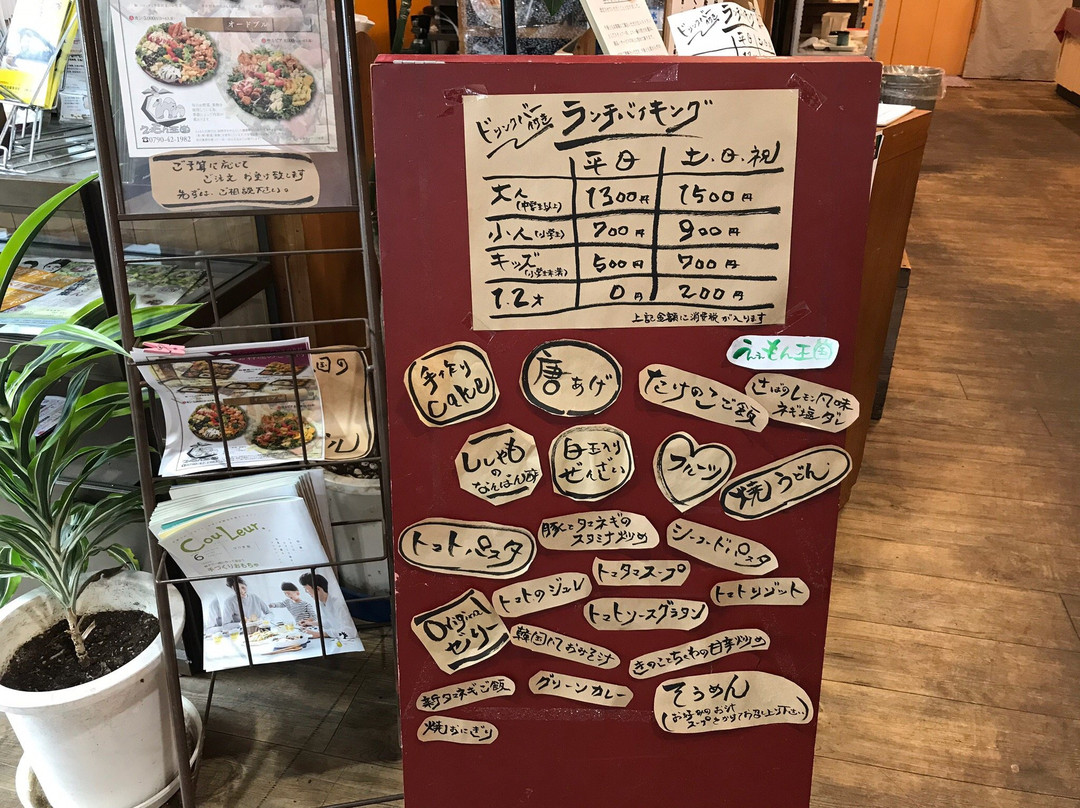 オードブル
えんもん王国
☎0790-42-1982
ご予算に応じて
ご注文 お受け致します
先ずは、ご相談下さい。
ドリンクバー付き ランチバイキング
平日 土.日.祝
大人(中学生以上) 1300円 1500円
小人(小学生) 700円 900円
キッズ(小学生未満) 500円 700円
1.2才 0円 200円
上記金額に消費税が入ります
えんもん王国
手作り
Cake
唐あげ
たけのこご飯
さばのレモン風味
ネギ塩ダレ
ししゃも
の
なんばん酢
白玉入り
ぜんざい
フルーツ
焼うどん
トマトパスタ
豚とタマネギの
スタミナ炒め
シーフードパスタ
トマトのジュレ
トマタマスープ
トマトリゾット
Original
ゼリー
トマトソースグラタン
韓国風おみそ汁
きのことちくわの甘辛炒め
新タマネギご飯
グリーンカレー
そうめん
(お好みのお汁
スープをかけてお召し上り下さい)
焼おにぎり
CouLeur.
6
手づくりおもちゃ